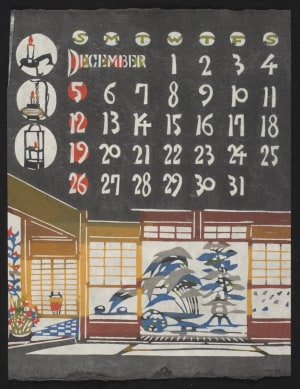 S M T W T F S
DECEMBER 1 2 3 4
5 6 7 8 9 10 11
12 13 14 15 16 17 18
19 20 21 22 23 24 25
26 27 28 29 30 31